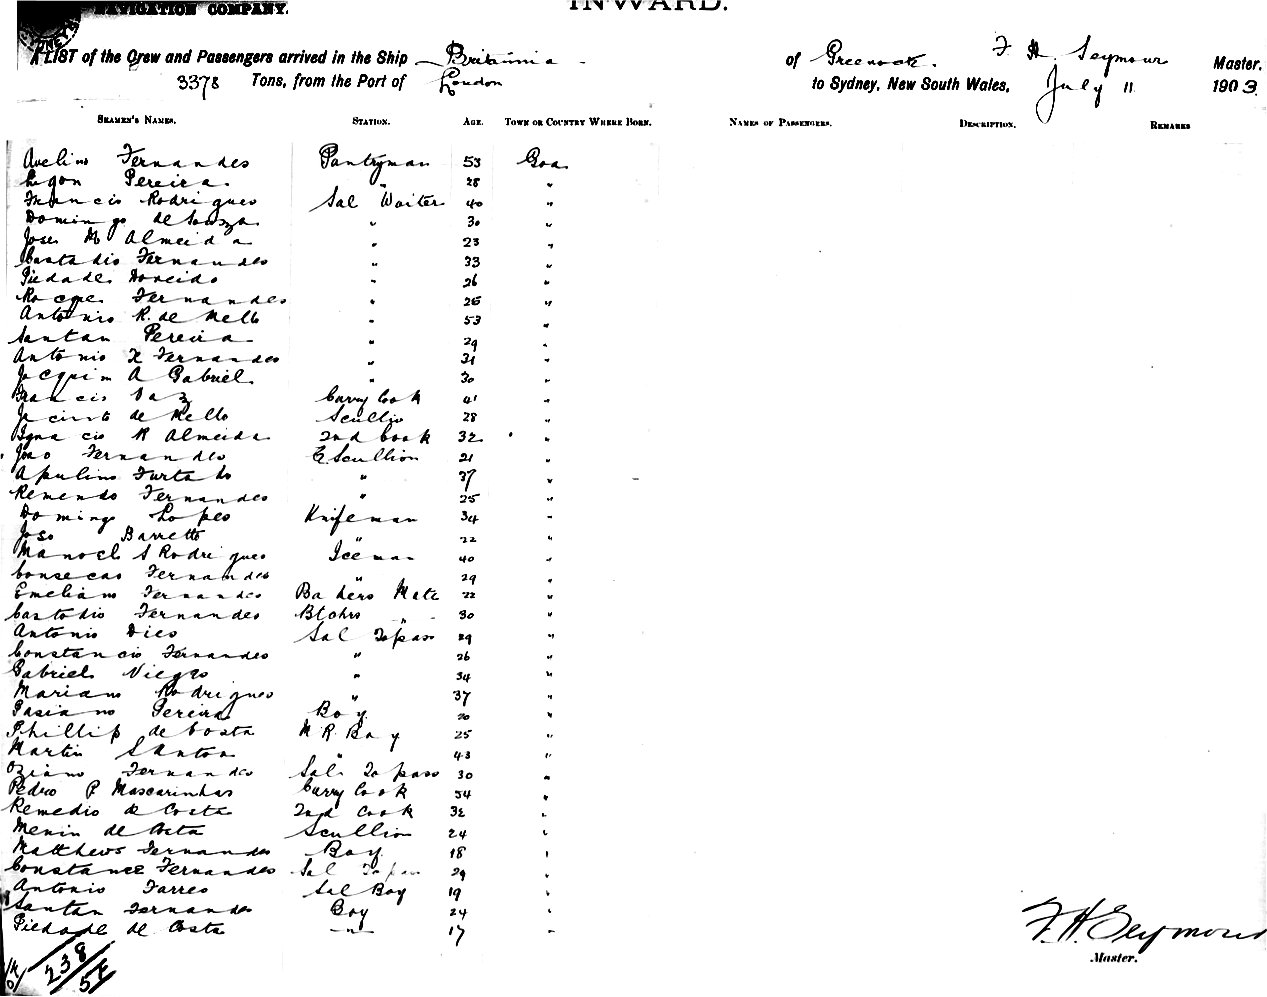 NAVIGATION COMPANY.
INWARD.
A LIST of the Crew and Passengers arrived in the Ship Britannia of Greenock. F. H. Seymour Master.
3378 Tons, from the Port of London to Sydney, New South Wales, July 11 1903
SEAMEN'S NAMES. STATION. AGE. TOWN OR COUNTRY WHERE BORN. NAMES OF PASSENGERS. DESCRIPTION. REMARKS
Avelino Fernandes Pantryman 53 Goa
Pereira " 28 "
Francis Rodrigues Sal Waiter 40 "
Domingo de Souza " 30 "
Jose M Almeida " 23 "
Custadio Fernandes " 33 "
Piedade " 26 "
Roque Fernandes " 25 "
Antonio R. de Mello " 53 "
Santan Pereira " 29 "
Antonio X Fernandes " 31 "
Jacquim A Gabriel " 30 "
Francis Vaz Curry Cook 41 "
Jacinto de Mello Scullio 28 "
Ignacio R Almeida 2nd Cook 32 "
Joao Fernandes E Scullion 21 "
Apulino Furtado " 37 "
Remendo Fernandes " 25 "
Domingo Lopes Knifeman 34 "
Jose Barretto " 22 "
Manoel S Rodrigues Iceman 40 "
Fernandes " 29 "
Emeliano Fernandes Bakers Mate 22 "
Custodio Fernandes Btchrs " 30 "
Antonio Dies Sal Topass 29 "
Constancio Fernandes " 26 "
Gabriel Viegas " 34 "
Mariano Rodrigues " 37 "
Pasiano Pereira Boy 20 "
Phillip de Costa M. R. Boy 25 "
Martin Santon " 43 "
Fernandes Sal. Topass 30 "
Pedro P Mascarinhas Curry Cook 54 "
Remedio de Costa 2nd Cook 32 "
Menin de Costa Scullion 24 "
Matthews Fernandes Boy 18 "
Constance Fernandes Sal Topass 29 "
Antonio Farres Sal Boy 19 "
Santan Fernandes Boy 24 "
Piedade de Costa " 17 "
F. H. Seymour
Master.
238/54